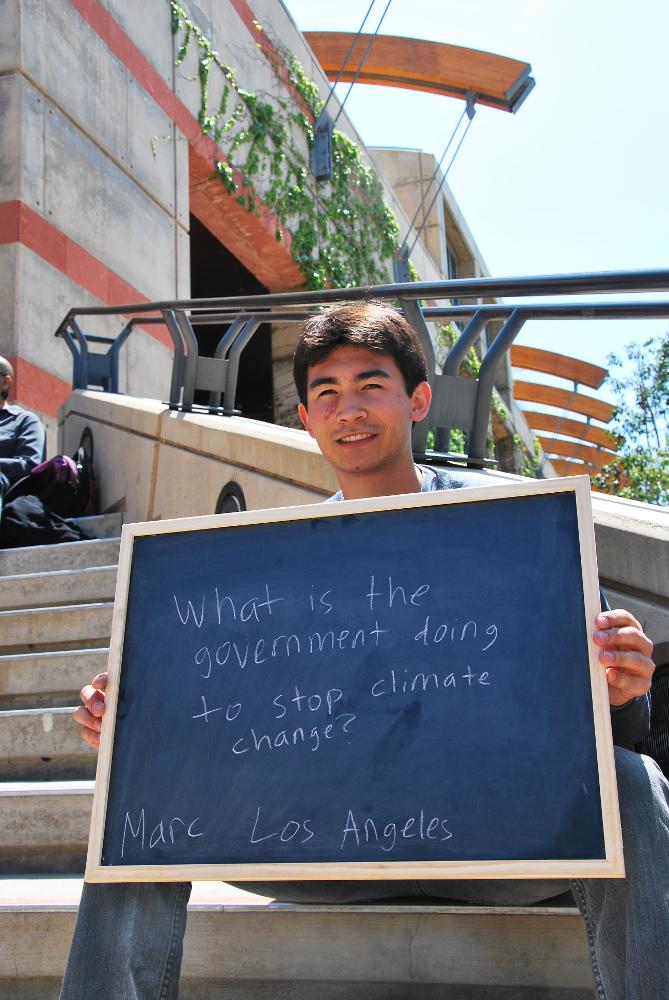 What is the
government doing
to stop climate
change?
Marc Los Angeles